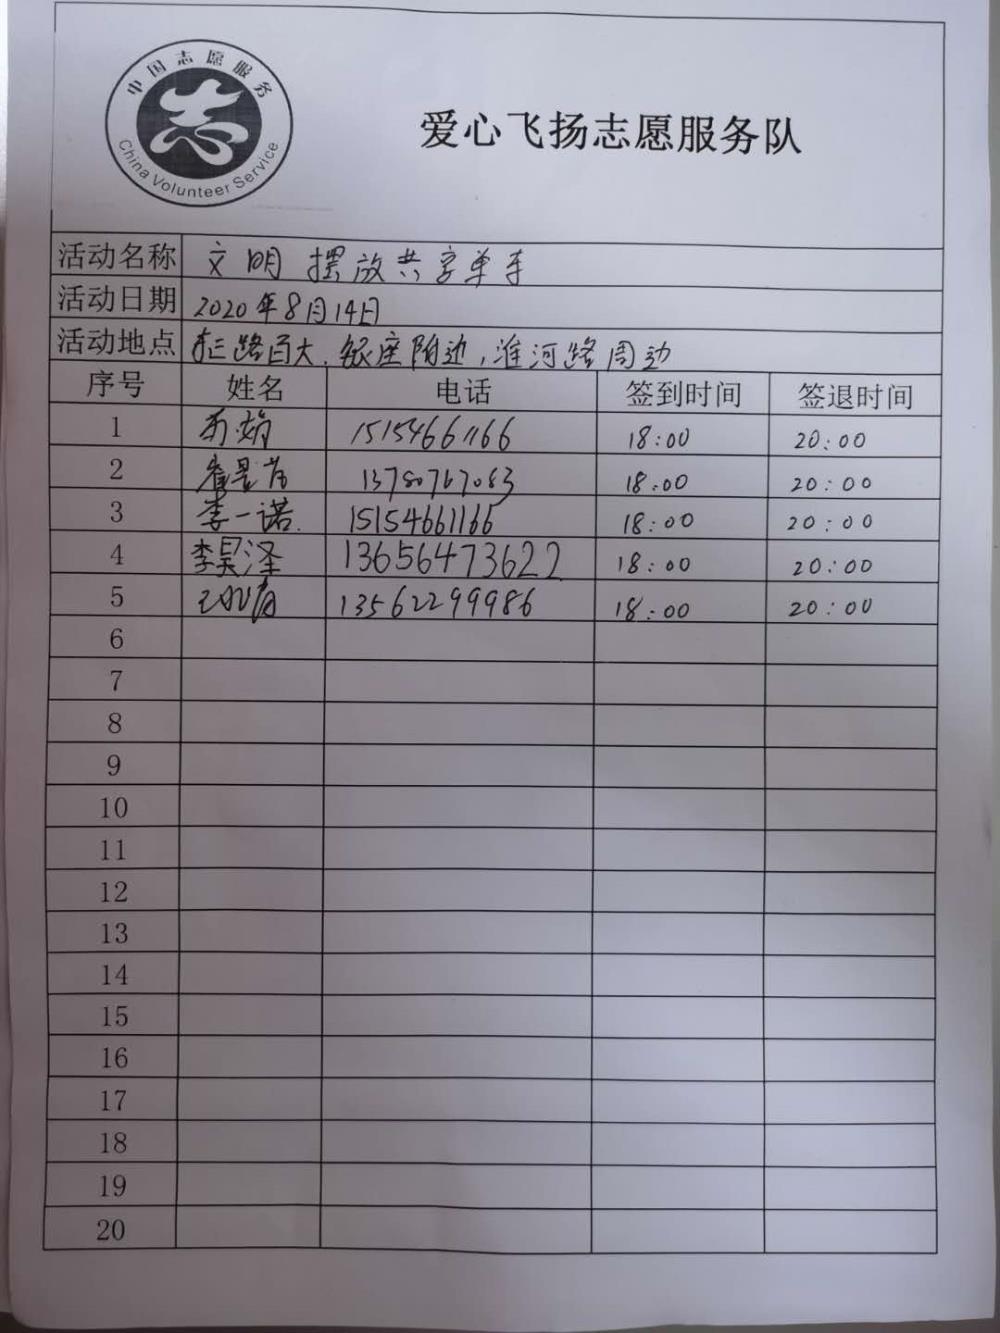 中国志愿服务
志
China Volunteer Service
爱心飞扬志愿服务队
活动名称 文明摆放共享单车
活动日期 2020年8月14日
活动地点 东三路百大、银座附近,淮河路周边
序号 姓名 电话 签到时间 签退时间
1 15154661166 18:00 20:00
2 13780767083 18:00 20:00
3 李一诺 15154661166 18:00 20:00
4 李昊泽 13656473622 18:00 20:00
5 13562299986 18:00 20:00
6
7
8
9
10
11
12
13
14
15
16
17
18
19
20